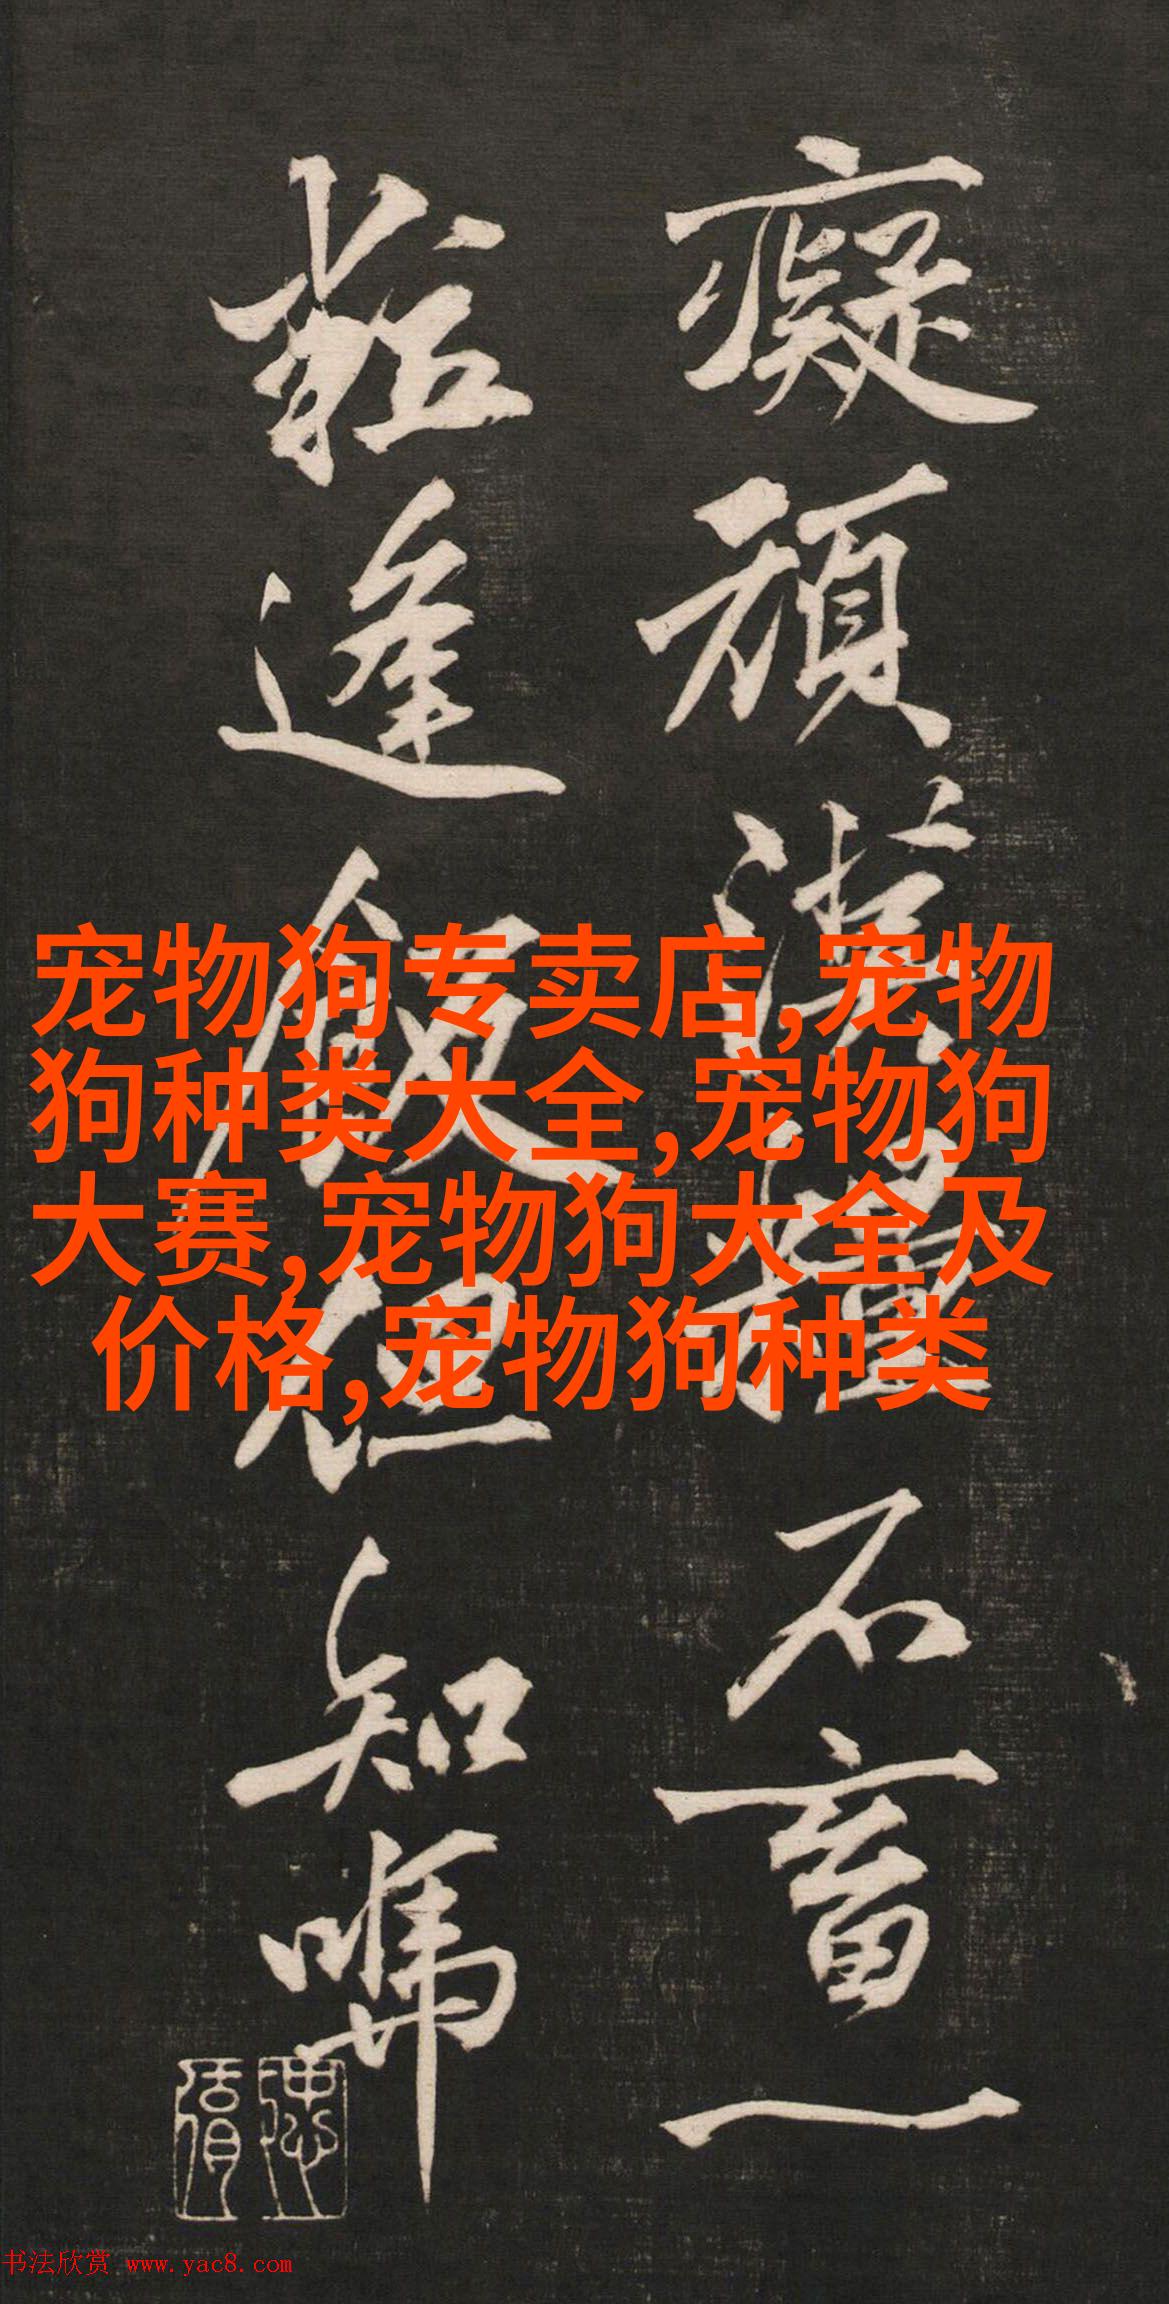 癡頑漢糧不畜一
粒逢飯但知
宠物狗专卖店,宠物
狗种类大全,宠物狗
大赛,宠物狗大全及
价格,宠物狗种类
书法欣赏 www.yac8.com